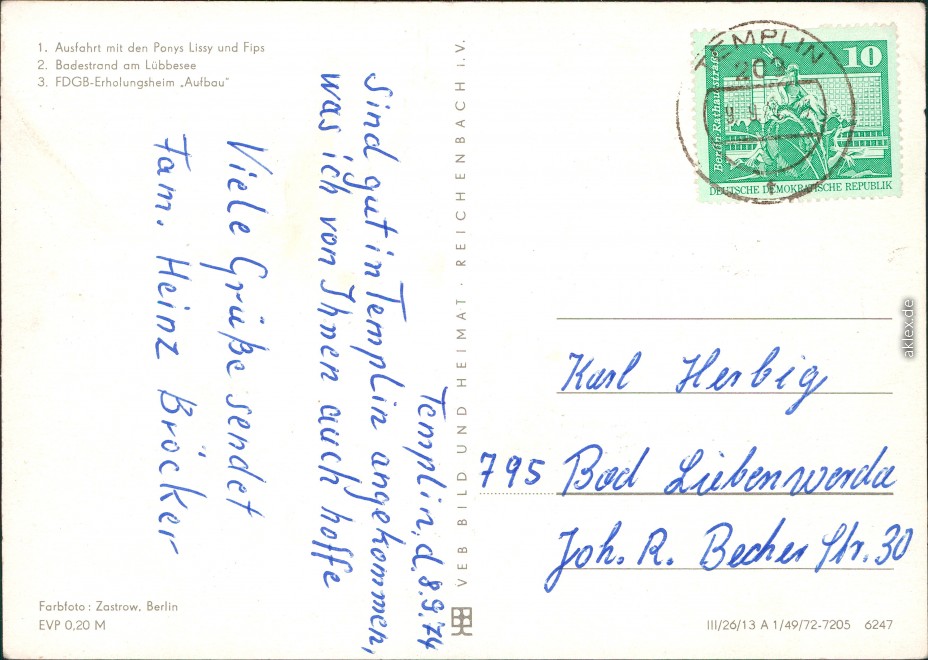 1. Ausfahrt mit den Ponys Lissy und Fips
2. Badestrand am Lübbesee
3. FDGB-Erholungsheim „Aufbau"
Templin, d. 8.9.74
Sind gut in Templin angekommen,
was ich von Ihnen auch hoffe
Viele Grüße sendet
Fam. Heinz Bröcker
Farbfoto: Zastrow, Berlin
EVP 0,20 M
VEB BILD UND HEIMAT · REICHENBACH i. V.
TEMPLIN
209
9. 9.
10
Berlin-Rathausstraße
DEUTSCHE DEMOKRATISCHE REPUBLIK
Karl Herbig
795 Bad Liebenwerda
Joh. R. Becher Str. 30
III/26/13 A 1/49/72-7205 6247
aklex.de